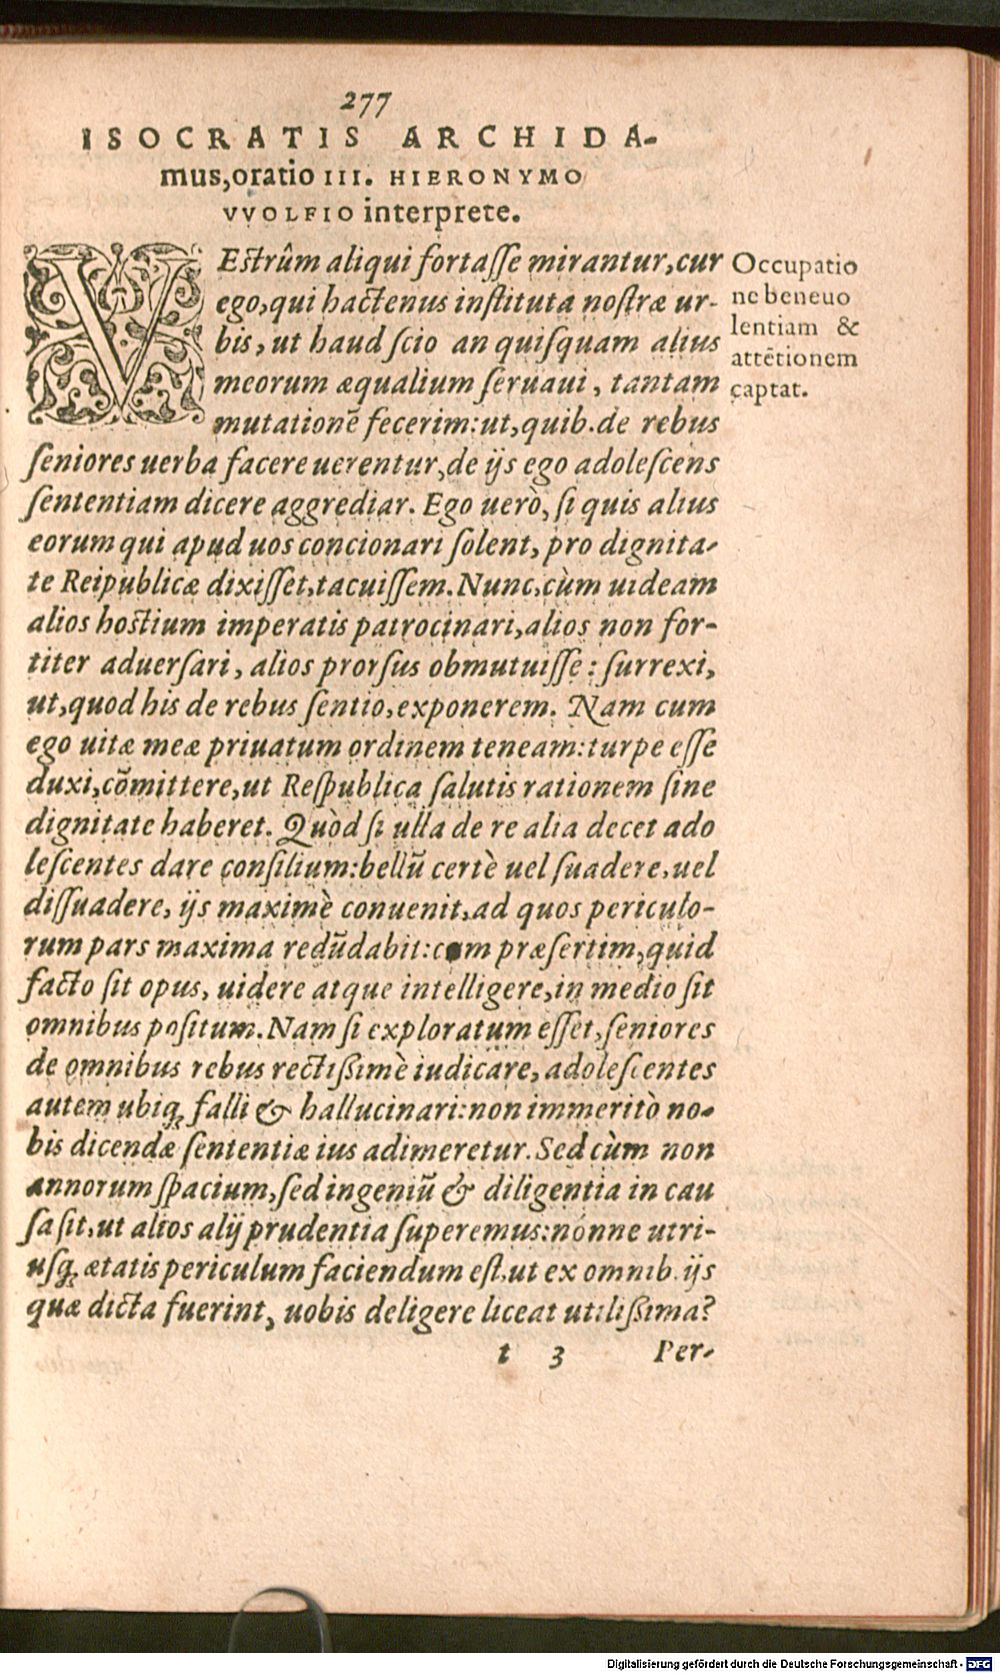 277
ISOCRATIS ARCHIDA-
mus,oratio III. HIERONYMO
VVOLFIO interprete.
VEstrûm aliqui fortasse mirantur,cur
ego,qui hactenus instituta nostræ ur-
bis, ut haud scio an quisquam alius
meorum æqualium seruaui, tantam
mutationẽ fecerim:ut,quib.de rebus
seniores uerba facere uerentur,de ijs ego adolescens
sententiam dicere aggrediar. Ego uerò, si quis alius
eorum qui apud uos concionari solent, pro dignita-
te Reipublicæ dixisset,tacuissem. Nunc,cùm uideam
alios hostium imperatis patrocinari,alios non for-
titer aduersari, alios prorsus obmutuisse: surrexi,
ut,quod his de rebus sentio,exponerem. Nam cum
ego uitæ meæ priuatum ordinem teneam:turpe esse
duxi,cõmittere,ut Respublica salutis rationem sine
dignitate haberet. Quòd si ulla de re alia decet ado
lescentes dare consilium:bellũ certè uel suadere,uel
dissuadere, ijs maximè conuenit,ad quos periculo-
rum pars maxima redũdabit:cum præsertim,quid
facto sit opus, uidere atque intelligere,in medio sit
omnibus positum. Nam si exploratum esset,seniores
de omnibus rebus rectissimè iudicare, adolescentes
autem ubiq; falli & hallucinari:non immeritò no-
bis dicendæ sententiæ ius adimeretur. Sed cùm non
annorum spacium,sed ingeniũ & diligentia in cau
sa sit,ut alios alij prudentia superemus:nónne utri-
usq; ætatis periculum faciendum est,ut ex omnib. ijs
quæ dicta fuerint, uobis deligere liceat utilissima?
t 3 Per-
Occupatio
ne beneuo
lentiam &
attẽtionem
captat.
Digitalisierung gefördert durch die Deutsche Forschungsgemeinschaft - DFG